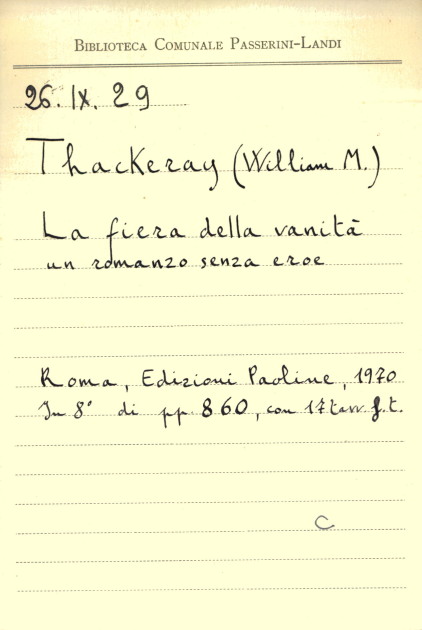 BIBLIOTECA COMUNALE PASSERINI-LANDI
26. IX. 29
Thackeray (William M.)
La fiera della vanità
un romanzo senza eroe
Roma, Edizioni Paoline, 1970
In 8° di pp. 860, con 17 tavv. f.t.
C